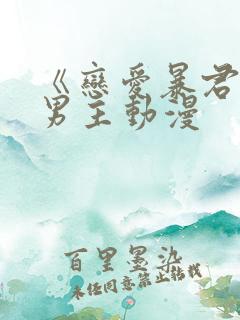 《戀愛暴君
男主動漫
百里墨染
未经同意禁止转载